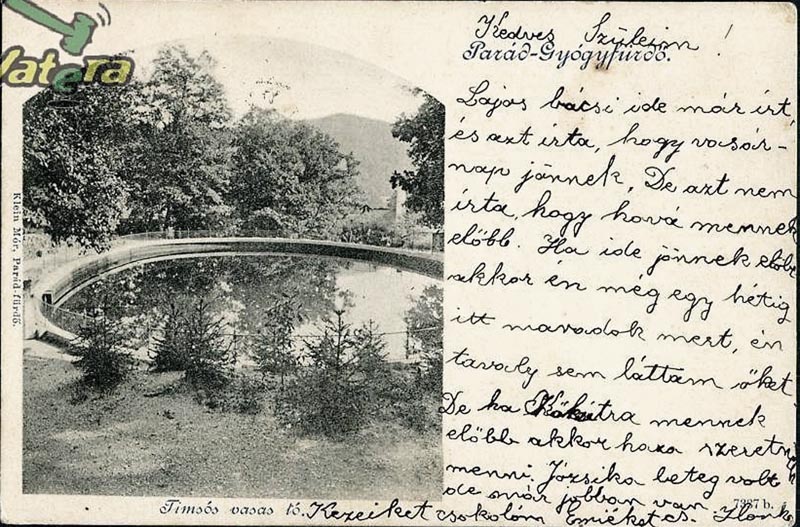 Vatera
Kedves Szüleim!
Parád-Gyógyfürdő.
Lajos bácsi ide már írt,
és azt írta, hogy vasár-
nap jönnek. De azt nem
írta, hogy hová mennek
előbb. Ha ide jönnek előbb
akkor én még egy hétig
itt maradok mert, én
tavaly sem láttam őket.
De ha Kőkútra mennek
előbb akkor haza szeretnék
menni. Józsika beteg volt
de már jobban van. 7327 b.
Timsós vasas tó. Kezeiket csokolom Ilonka
Klein Mór, Parád-fürdő.